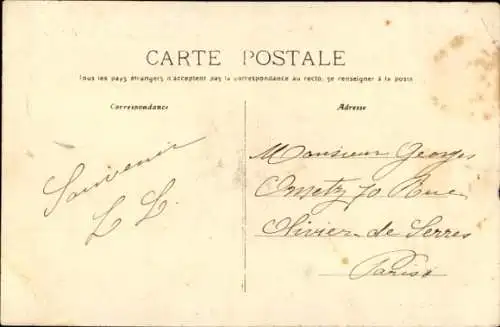 CARTE POSTALE
Tous les pays étrangers n'acceptent pas la correspondance au recto, se renseigner à la poste
Correspondance
Adresse
Souvenir
L L.
Monsieur Georges
Ometz 70 Rue
Olivier de Serres
Paris